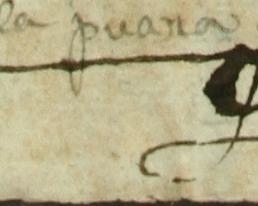 la puana